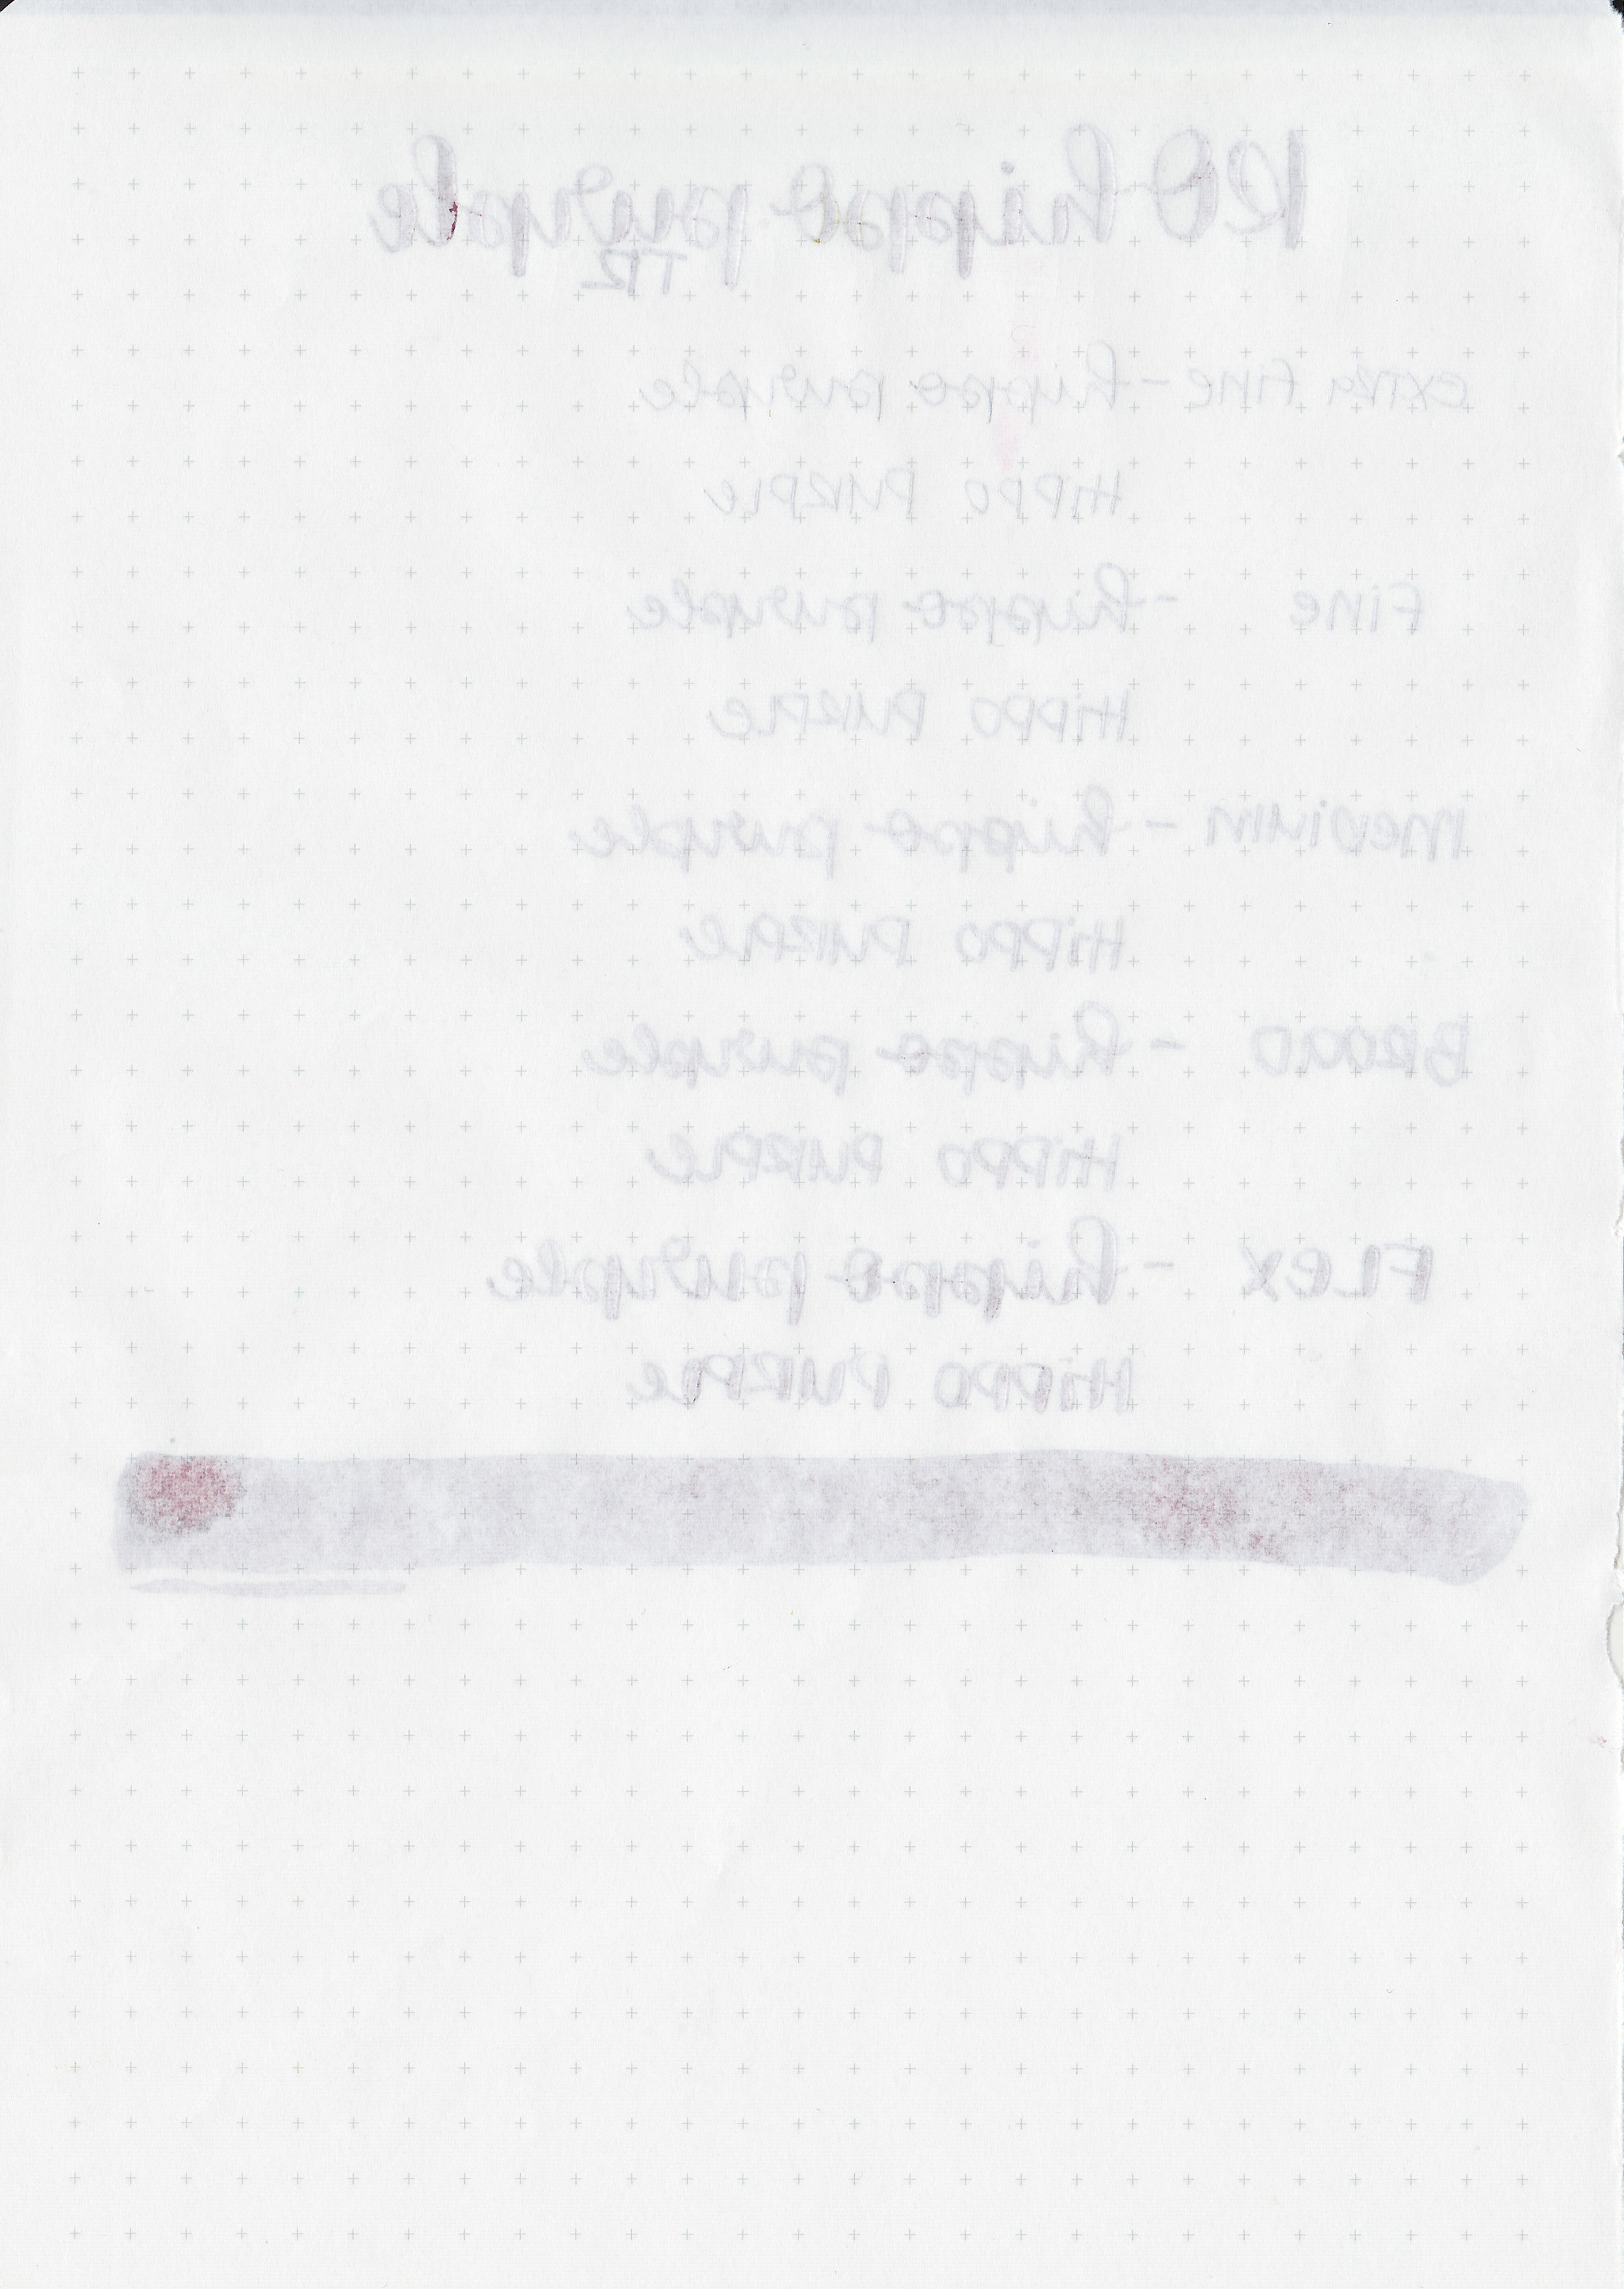 RO hippo purple
TR
extra fine - hippo purple
Hippo Purple
Fine - hippo purple
Hippo Purple
Medium - hippo purple
Hippo Purple
Broad - hippo purple
Hippo Purple
Flex - hippo purple
Hippo Purple